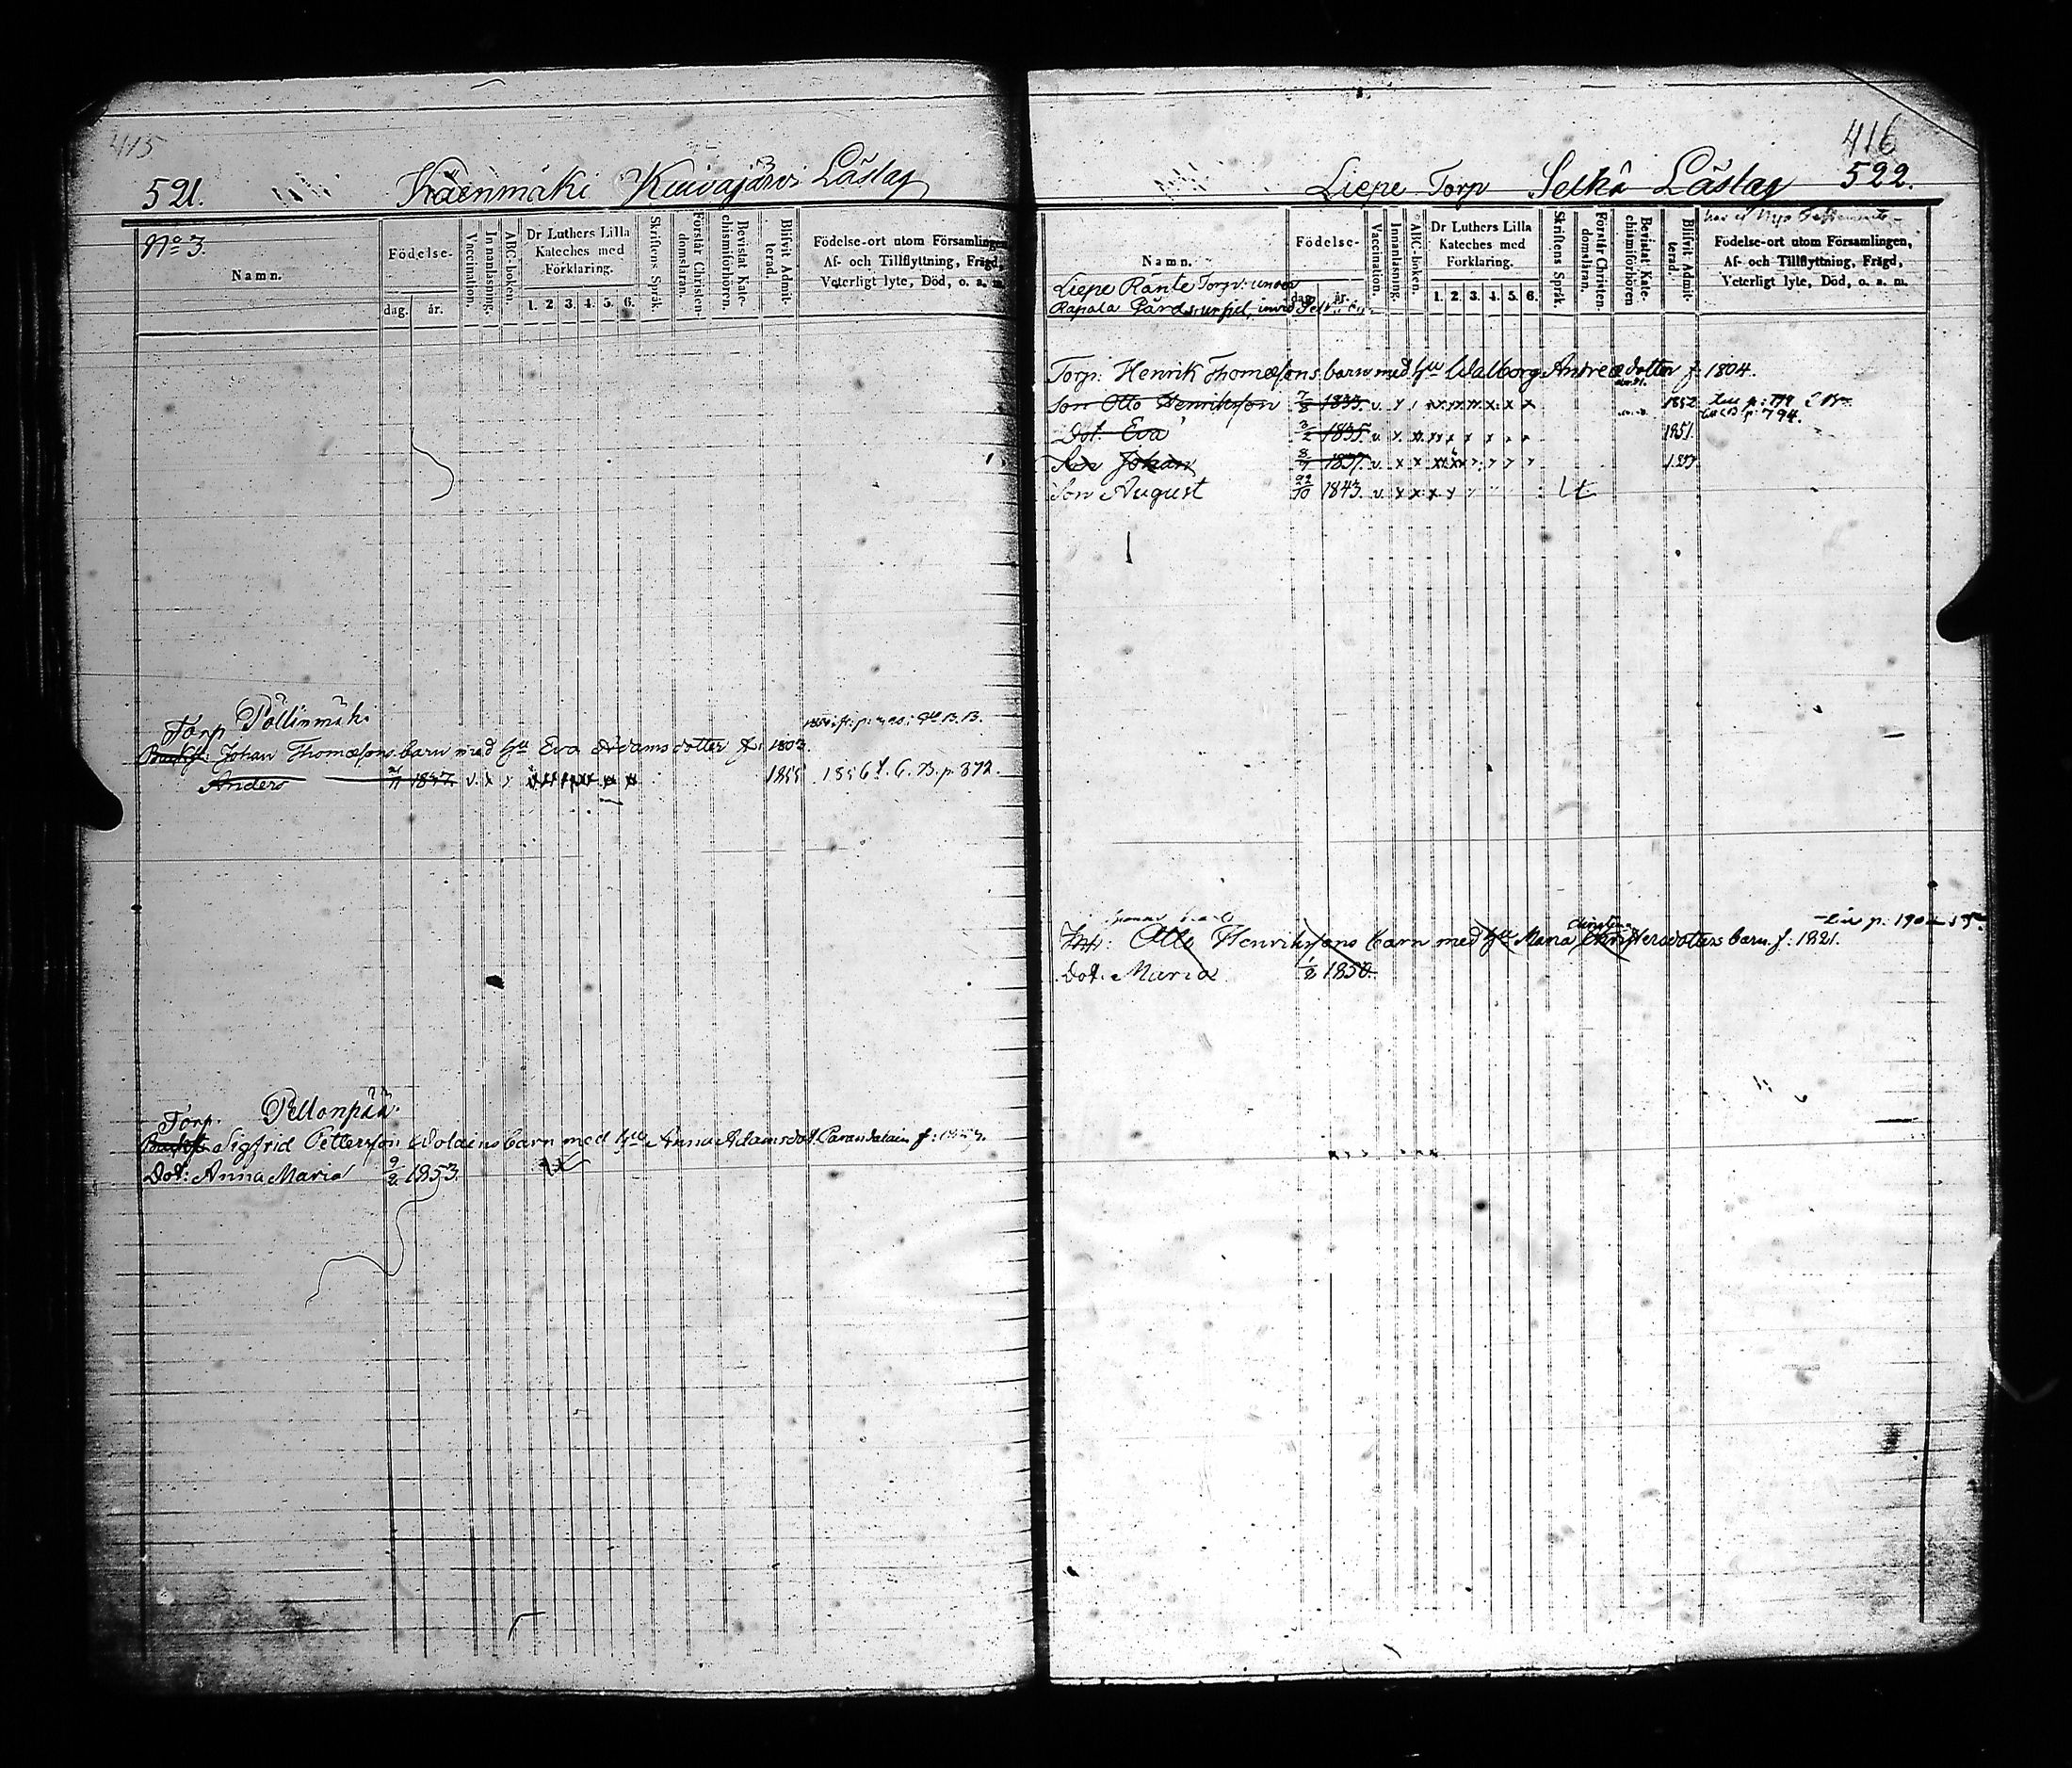 415
521. Käenmäki Kuivajärvi Läslag
No 3.
Namn.
Födelse-
dag. år.
Vaccination.
Innanläsning.
ABC-boken.
Dr Luthers Lilla
Kateches med
Förklaring.
1. 2. 3. 4. 5. 6.
Skriftens Språk.
Förstår Christen-
domsläran.
Bevistat Kate-
chismiförhören
Blifvit Admit-
terad.
Födelse-ort utom Församlingen,
Af- och Tillflyttning, Frägd,
Veterligt lyte, Död, o. s. m.
Pöllinmäki
Torp
Johan Thomæsons barn med Hu Eva Adamsdotter f. 1803.
Anders 1837. v. x 1855 1856 f. C. B. p. 372.
Pellonpää.
Torp.
Sigfrid Pettersson barn med Hu Anna Adamsdot.
Dot: Anna Maria 9/2 1853.
416
Liepe Torp Selkä Läslag 522.
Namn.
Liepe Ränte Torp: under
Rapala
Födelse-
dag. år.
Vaccination.
Innanläsning.
ABC-boken.
Dr Luthers Lilla
Kateches med
Förklaring.
1. 2. 3. 4. 5. 6.
Skriftens Språk.
Förstår Christen-
domsläran.
Bevistat Kate-
chismiförhören
Blifvit Admit-
terad.
Födelse-ort utom Församlingen,
Af- och Tillflyttning, Frägd,
Veterligt lyte, Död, o. s. m.
Torp: Henrik Thomæsons barn med Hu Walborg Andreædotter f. 1804.
Son Otto Henriksson 7/8 1833. v. 1852
p. 794.
Dot. Eva 3/2 1835. v x 1851.
Son Johan 8/7 1837. v x x
Son August 22/10 1843. v x x x
Otto Henrikssons barn med Hu Maria barn f: 1821.
Dot. Maria 1/2 1850.